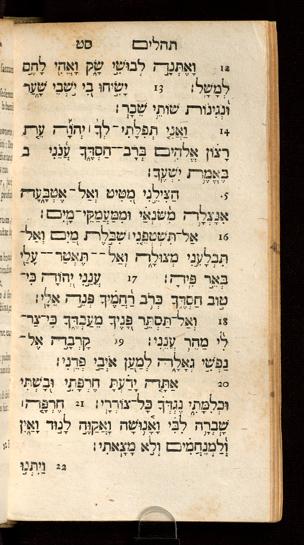 תהלים סט
12 וָאֶתְּנָה לְבוּשִׁי שָׂק וָאֱהִי לָהֶם
לְמָשָׁל׃ 13 יָשִׂיחוּ בִי יֹשְׁבֵי שָׁעַר
וּנְגִינוֹת שׁוֹתֵי שֵׁכָר׃
14 וַאֲנִי תְפִלָּתִי־לְךָ יְהֹוָה עֵת
רָצוֹן אֱלֹהִים בְּרָב־חַסְדֶּךָ עֲנֵנִי
בֶּאֱמֶת יִשְׁעֶךָ׃
הַצִּילֵנִי מִטִּיט וְאַל־אֶטְבָּעָה
אִנָּצְלָה מִשֹּׂנְאַי וּמִמַּעֲמַקֵּי־מָיִם׃
16 אַל־תִּשְׁטְפֵנִי שִׁבֹּלֶת מַיִם וְאַל־
תִּבְלָעֵנִי מְצוּלָה וְאַל־תֶּאְטַר־עָלַי
בְּאֵר פִּיהָ׃ 17 עֲנֵנִי יְהֹוָה כִּי־
טוֹב חַסְדֶּךָ כְּרֹב רַחֲמֶיךָ פְּנֵה אֵלָי׃
18 וְאַל־תַּסְתֵּר פָּנֶיךָ מֵעַבְדֶּךָ כִּי־צַר־
לִי מַהֵר עֲנֵנִי׃ 19 קָרְבָה אֶל־
נַפְשִׁי גְאָלָהּ לְמַעַן אֹיְבַי פְּדֵנִי׃
20 אַתָּה יָדַעְתָּ חֶרְפָּתִי וּבָשְׁתִּי
וּכְלִמָּתִי נֶגְדְּךָ כָּל־צוֹרְרָי׃ 21 חֶרְפָּה
שָׁבְרָה לִבִּי וָאָנוּשָׁה וָאֲקַוֶּה לָנוּד וָאַיִן
וְלַמְנַחֲמִים וְלֹא מָצָאתִי׃
22 וַיִּתְּנוּ